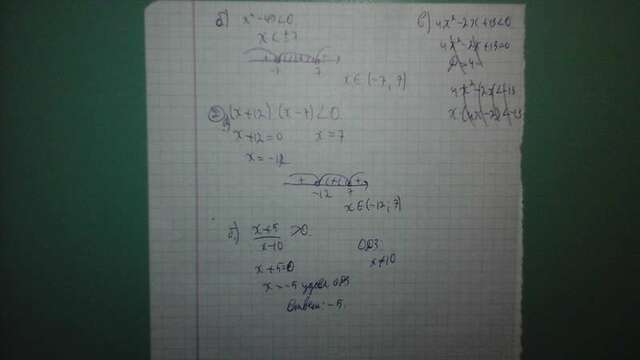 б) x² - 49 < 0
x < ± 7
-7 7
x ∈ (-7; 7)
в) 4x² - 2x + 13 < 0
4x² - 2x + 13 = 0
4x² - 2x < -13
x (4x - 2) < -13
② а) (x + 12) (x - 7) < 0
x + 12 = 0 x = 7
x = -12
+ - +
-12 7
x ∈ (-12; 7)
б) x + 5 / x - 10 > 0
ОДЗ
x + 5 = 0
x ≠ 10
x = -5 удов. ОДЗ
Ответ: -5